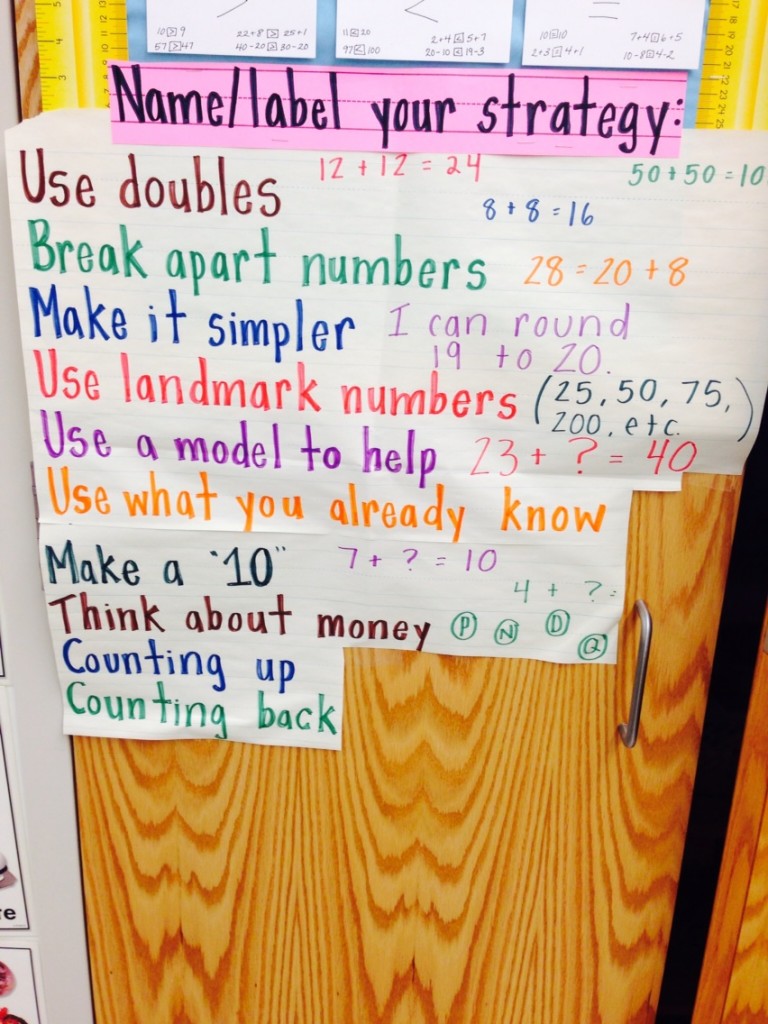 10 > 9
57 > 47
22+8 > 25+1
40-20 > 30-20
11 < 20
97 < 100
2+4 < 5+7
20-10 < 19-3
10 = 10
2+3 = 4+1
7+4 = 6+5
Name/label your strategy:
Use doubles 12 + 12 = 24 50 + 50 = 10
8 + 8 = 16
Break apart numbers 28 = 20 + 8
Make it simpler I can round
19 to 20.
Use landmark numbers (25, 50, 75,
200, etc.)
Use a model to help 23 + ? = 40
Use what you already know
Make a "10" 7 + ? = 10
4 + ? =
Think about money P N D Q
Counting up
Counting back
re